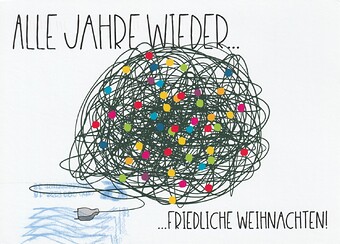 ALLE JAHRE WIEDER...
...FRIEDLICHE WEIHNACHTEN!